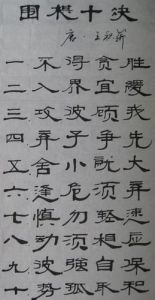 围棋十决
唐·王积薪
一不得贪胜
二入界宜缓
三攻彼顾我
四弃子争先
五舍小就大
六逢危须弃
七慎勿轻速
八动须相应
九彼强自保
十势孤取和